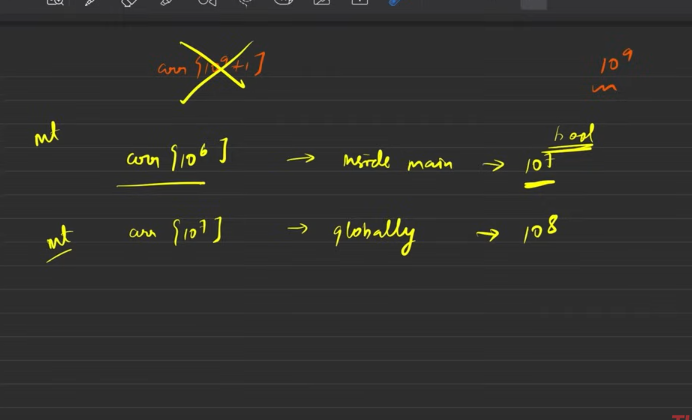 arr [10⁹+1]
10⁹
int
bool
arr [10⁶] → inside main → 10⁷
int arr [10⁷] → globally → 10⁸